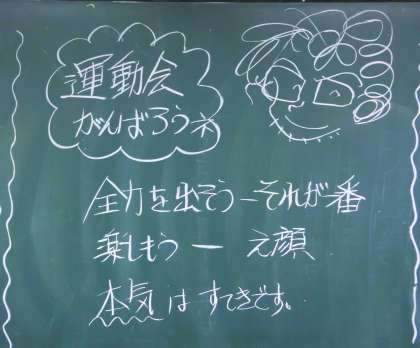 運動会
がんばろうネ
全力を出そうーそれが一番
楽しもう ー 元顔
本気はすてきです。